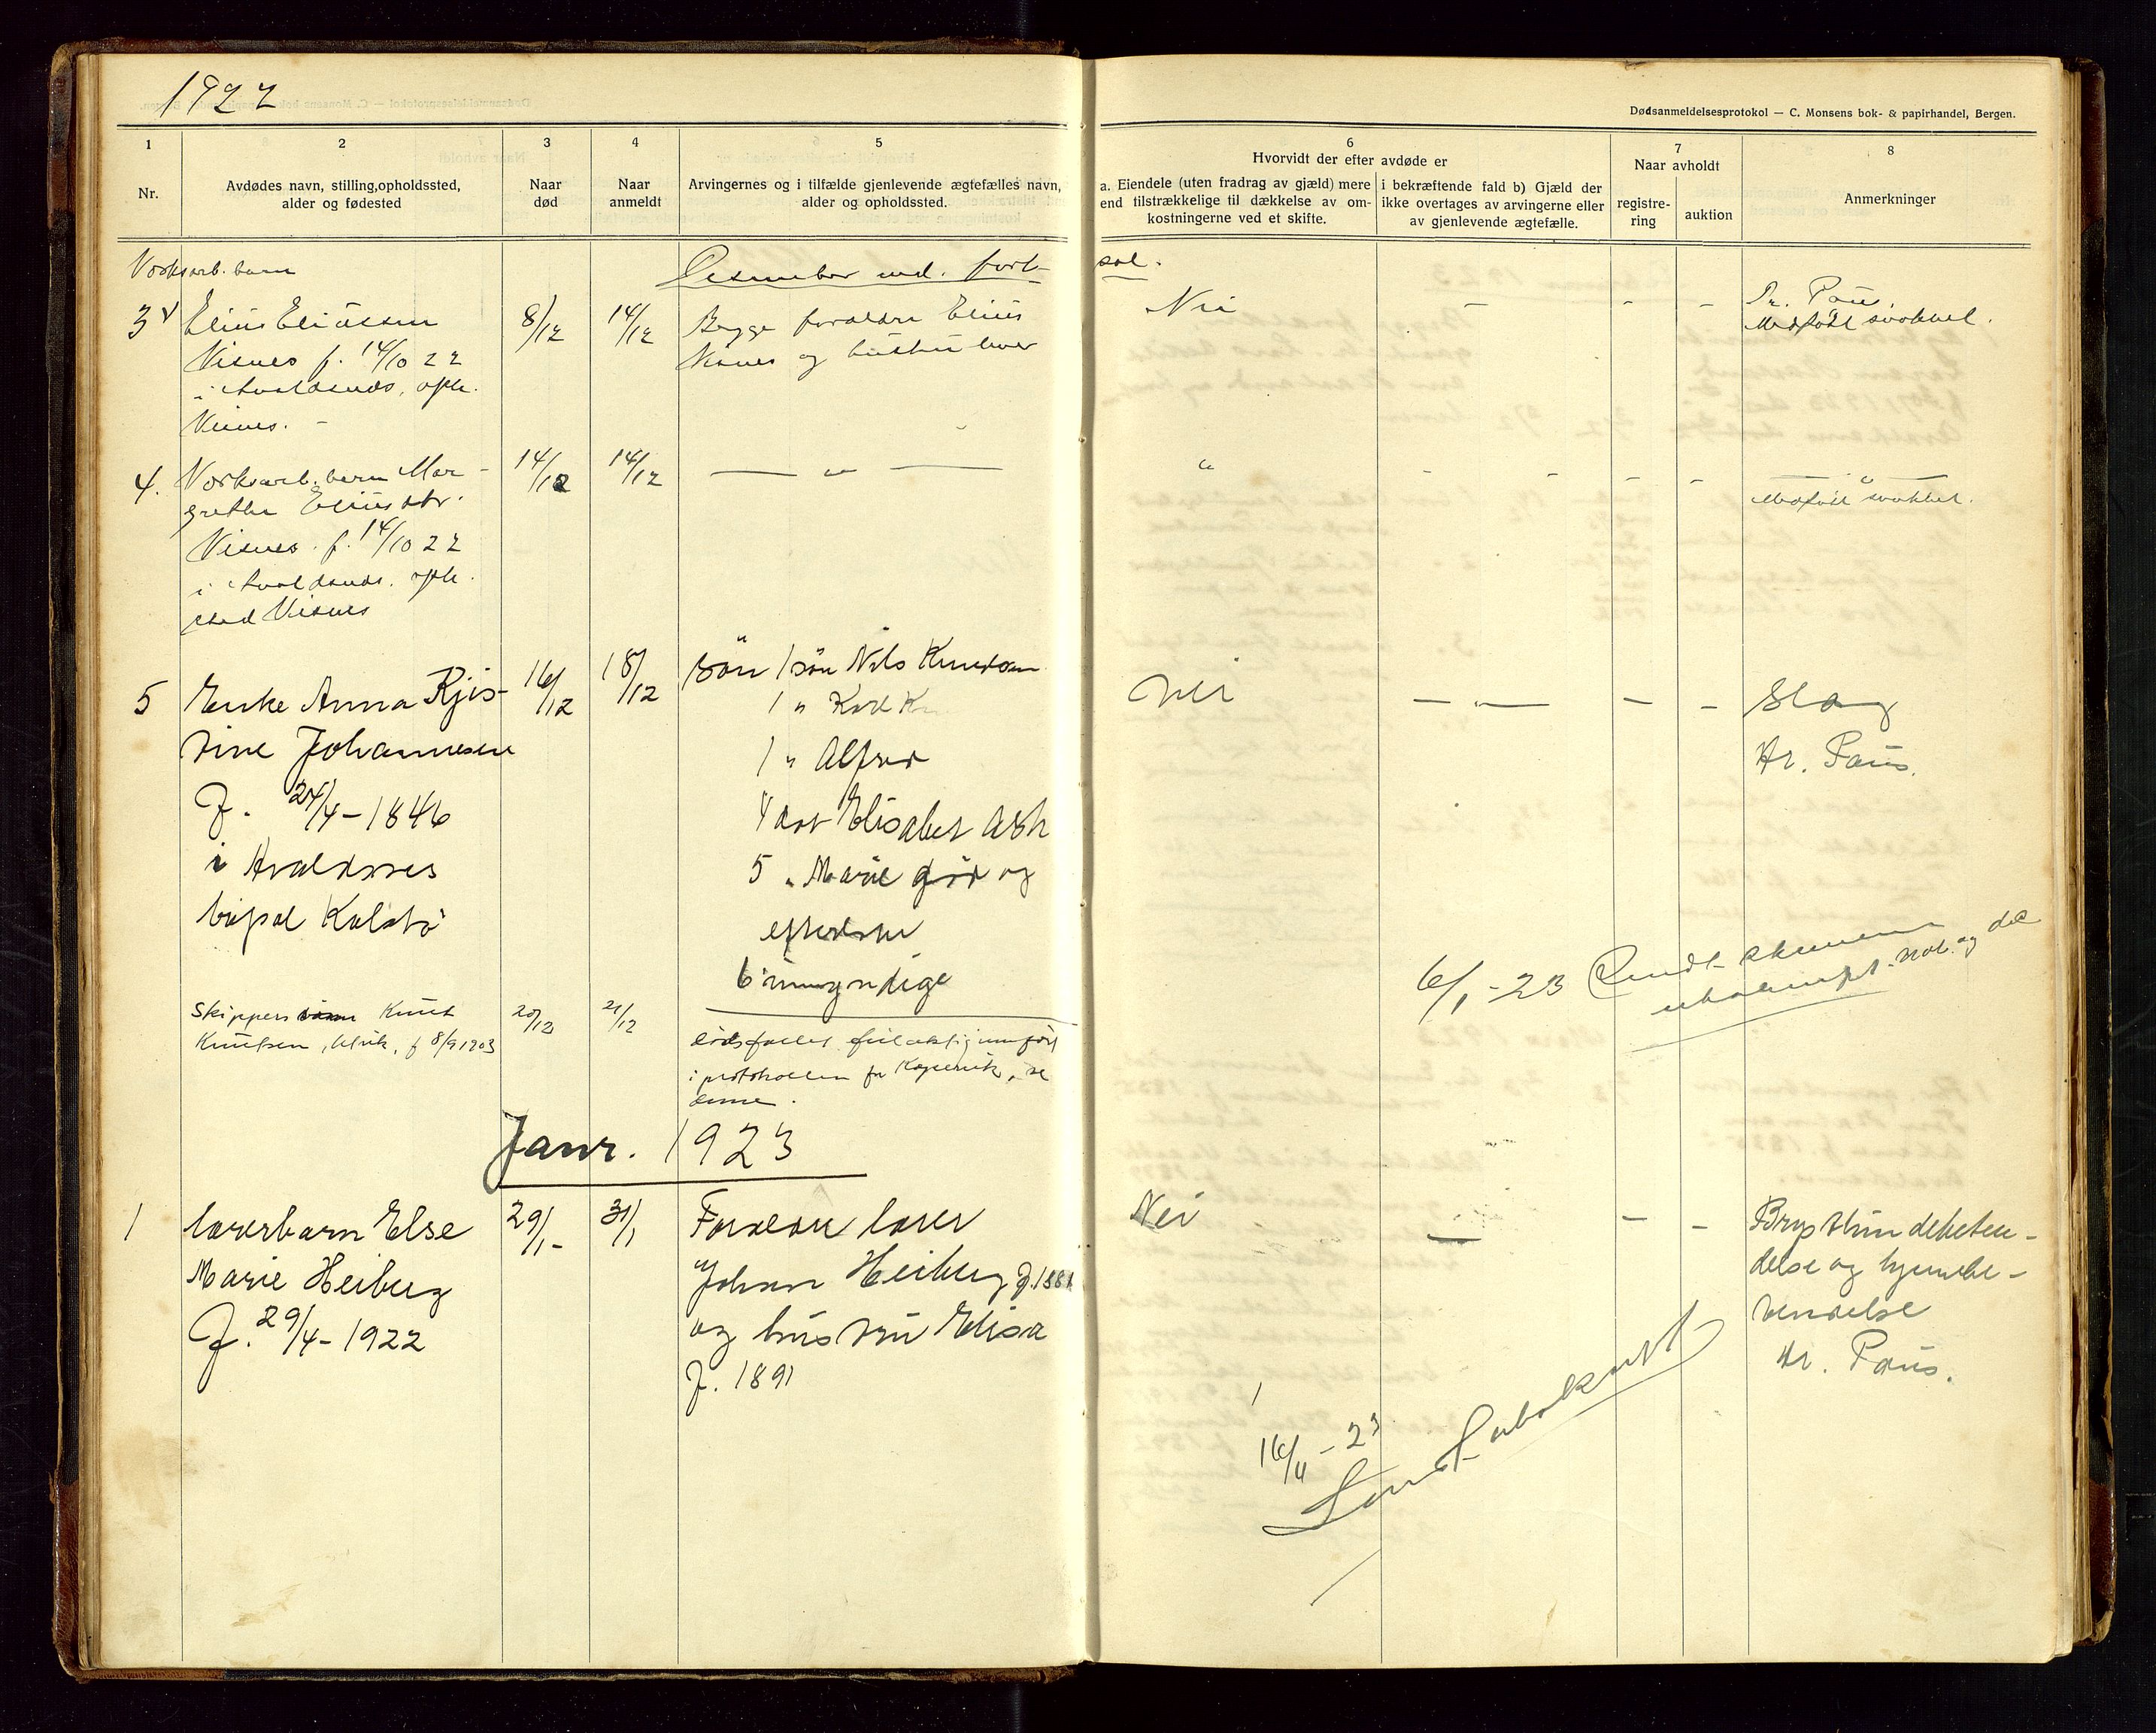 1922
Dødsanmeldelsesprotokol — C. Monsens bok- & papirhandel, Bergen.
1
2
3
4
5
6
7
8
Nr.
Avdødes navn, stilling, opholdssted,
alder og fødested
Naar
død
Naar
anmeldt
Arvingernes og i tilfælde gjenlevende ægtefælles navn,
alder og opholdssted.
Hvorvidt der efter avdøde er
a. Eiendele (uten fradrag av gjæld) mere
end tilstrækkelige til dækkelse av om-
kostningerne ved et skifte.
i bekræftende fald b) Gjæld der
ikke overtages av arvingerne eller
av gjenlevende ægtefælle.
Naar avholdt
registre-
ring
auktion
Anmerkninger
Desember md. fort-
sat.
Verksarb. barn
3 Elius Eliassen
Visnes f. 14/10 22
i Avaldsnes, oph.
Visnes. -
8/12
14/12
Begge foraldre Elius
Visnes og hustru lever
Nei
- - -
Dr. Paus.
Medfødt svakhet.
4. Verksarb. barn Mar-
grethe Eliusdtr.
Visnes. f. 14/10 22
i Avaldsnes. oph.
sted Visnes
14/12
14/12
— " —
"
- - - -
— " —
Medfødt svakhet.
5 Enke Anna Kjis-
tine Johannesen
F. 24/4-1846
i Avaldsnes
bopel Kalstø
16/12
18/12
Børn 1 søn Nils Knudsen
1 " Karl K
1 " Alfred
4 dat Elisabet
5 " Marie død og
6 umyndige
Nei
— " — - -
Slag
Dr. Paus.
6/1-23
Skippers Knut
Knutsen, f 8/9 1903
20/12
21/12
Dødsfallet feilaktig innført
i protokollen for Kopervik, se
denne.
Janr. 1923
1 Lærerbarn Else
Marie Heiberg
F. 29/4-1922
29/1-
31/1
Forældre lærer
Johan Heiberg F. 188
og hustru Elisa
F. 1891
Nei
— - -
Brysthindebeten-
delse og hjernebe-
tendelse
Dr. Paus.
16/11-23